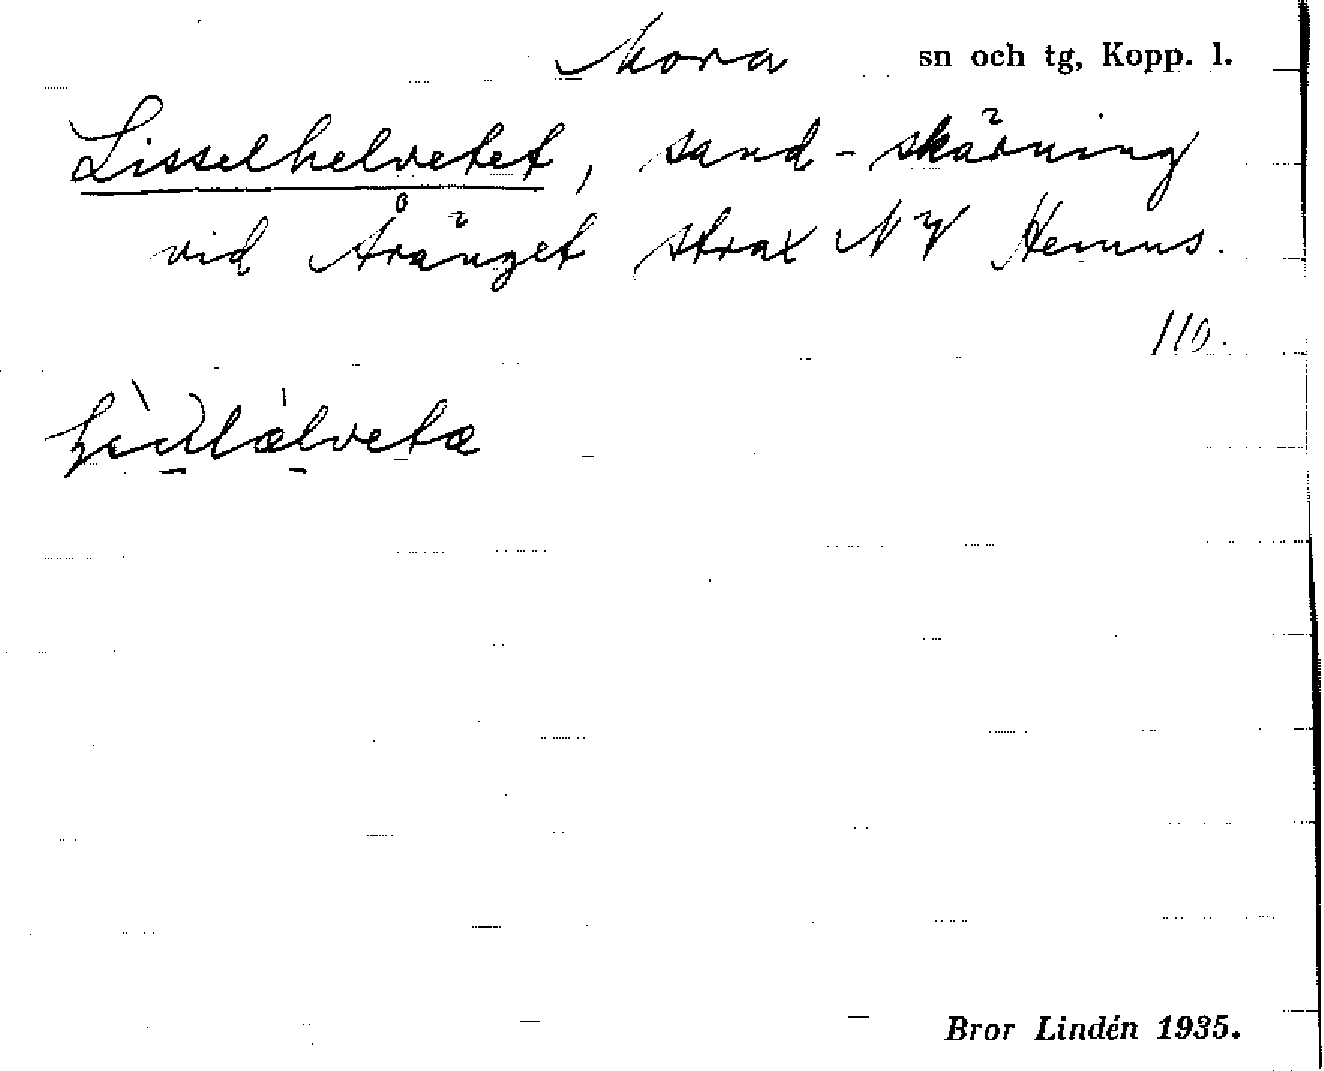 Mora sn och tg, Kopp. l.
Lisselhelvetet, sand-skärning
vid Åränget strax NV Hemus.
110.
Bror Lindén 1935.